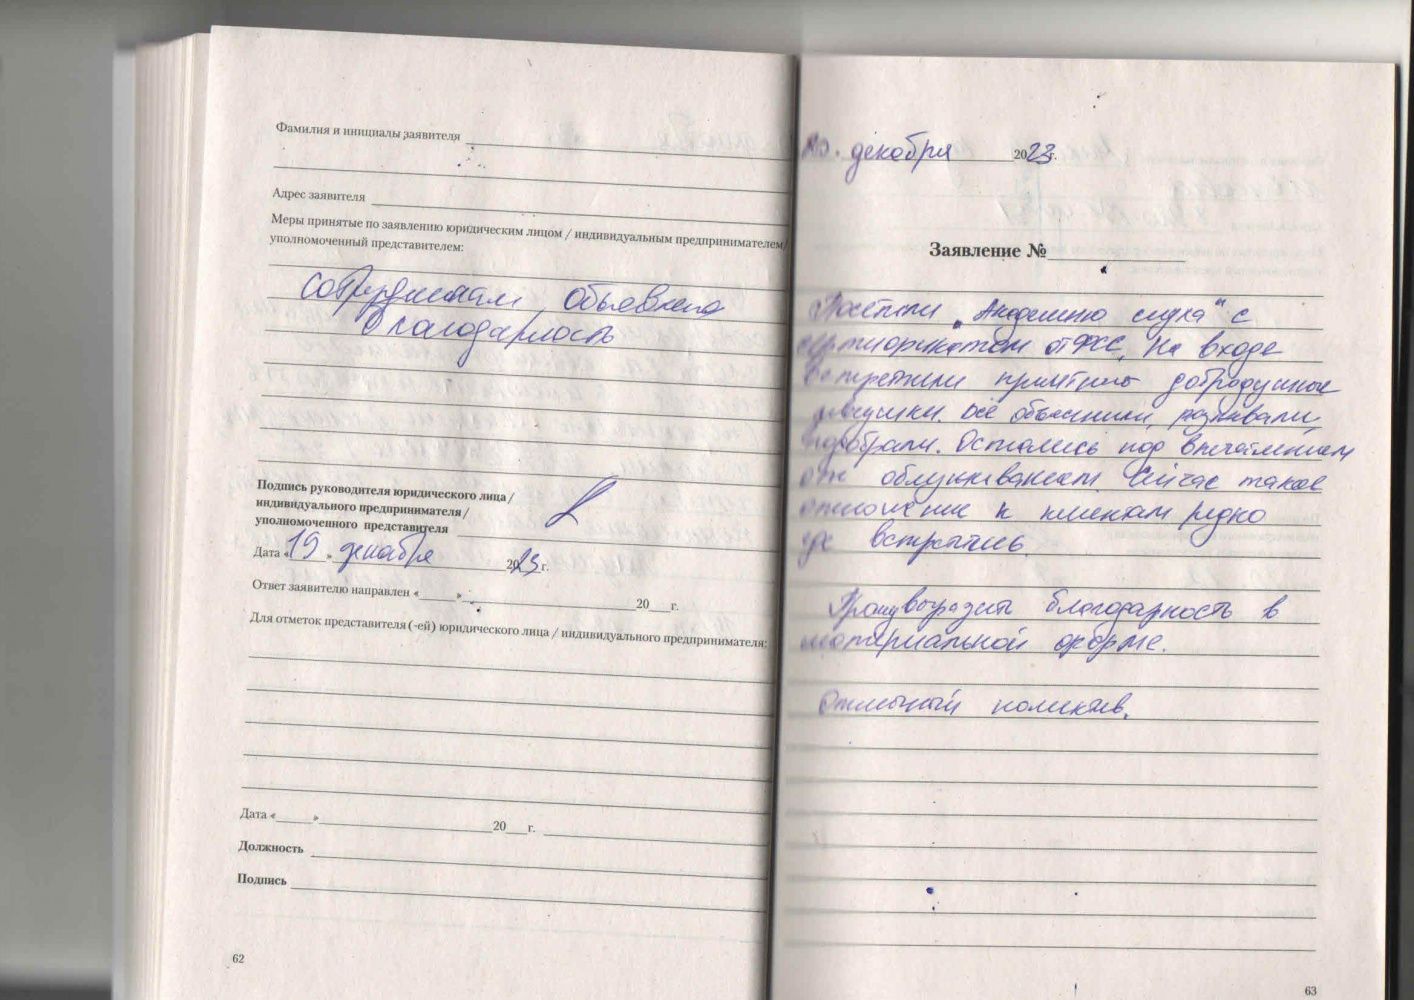 Фамилия и инициалы заявителя
Адрес заявителя
Меры принятые по заявлению юридическим лицом / индивидуальным предпринимателем/
уполномоченный представителем:
сотрудникам объявлена
благодарность
Подпись руководителя юридического лица /
индивидуального предпринимателя /
уполномоченного представителя
Дата «19» декабря 2023г.
Ответ заявителю направлен «     » 20     г.
Для отметок представителя (-ей) юридического лица / индивидуального предпринимателя:
Дата «     » 20     г.
Должность
Подпись
62
декабря 2023г.
Заявление №
Посетили „Академию слуха" с
сертификатом от ФСС. На входе
встретили приятные добродушные
девушки. Все объяснили, разжевали,
подобрали. Остались под впечатлением
от обслуживания. Сейчас такое
отношение к клиентам редко
где встретишь.
Прошу выразить благодарность в
материальной форме.
Отличный коллектив.
63